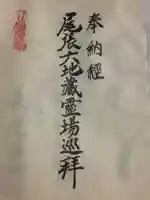 奉納經
尾張六地蔵霊場巡拜